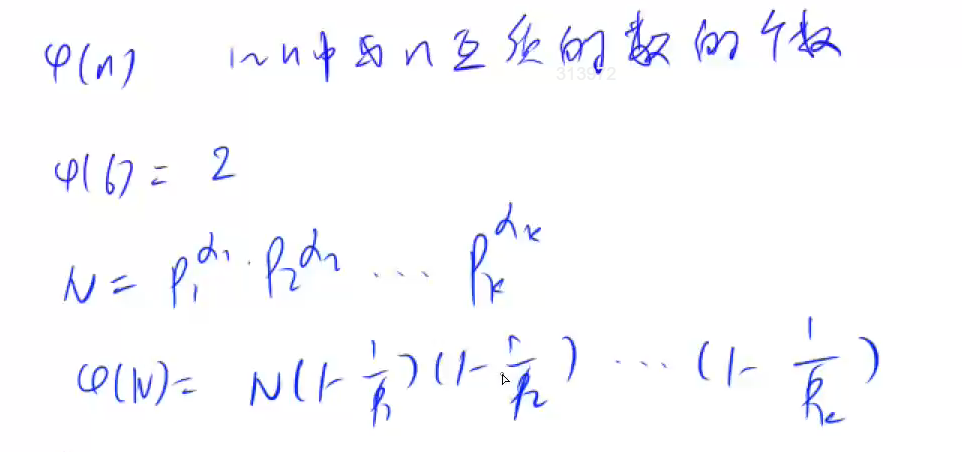 φ(n) 1~n中与n互质的数的个数
313972
φ(6) = 2
N = P₁^α₁ · P₂^α₂ ... Pₖ^αₖ
φ(N) = N(1-1/P₁)(1-1/P₂) ... (1-1/Pₖ)